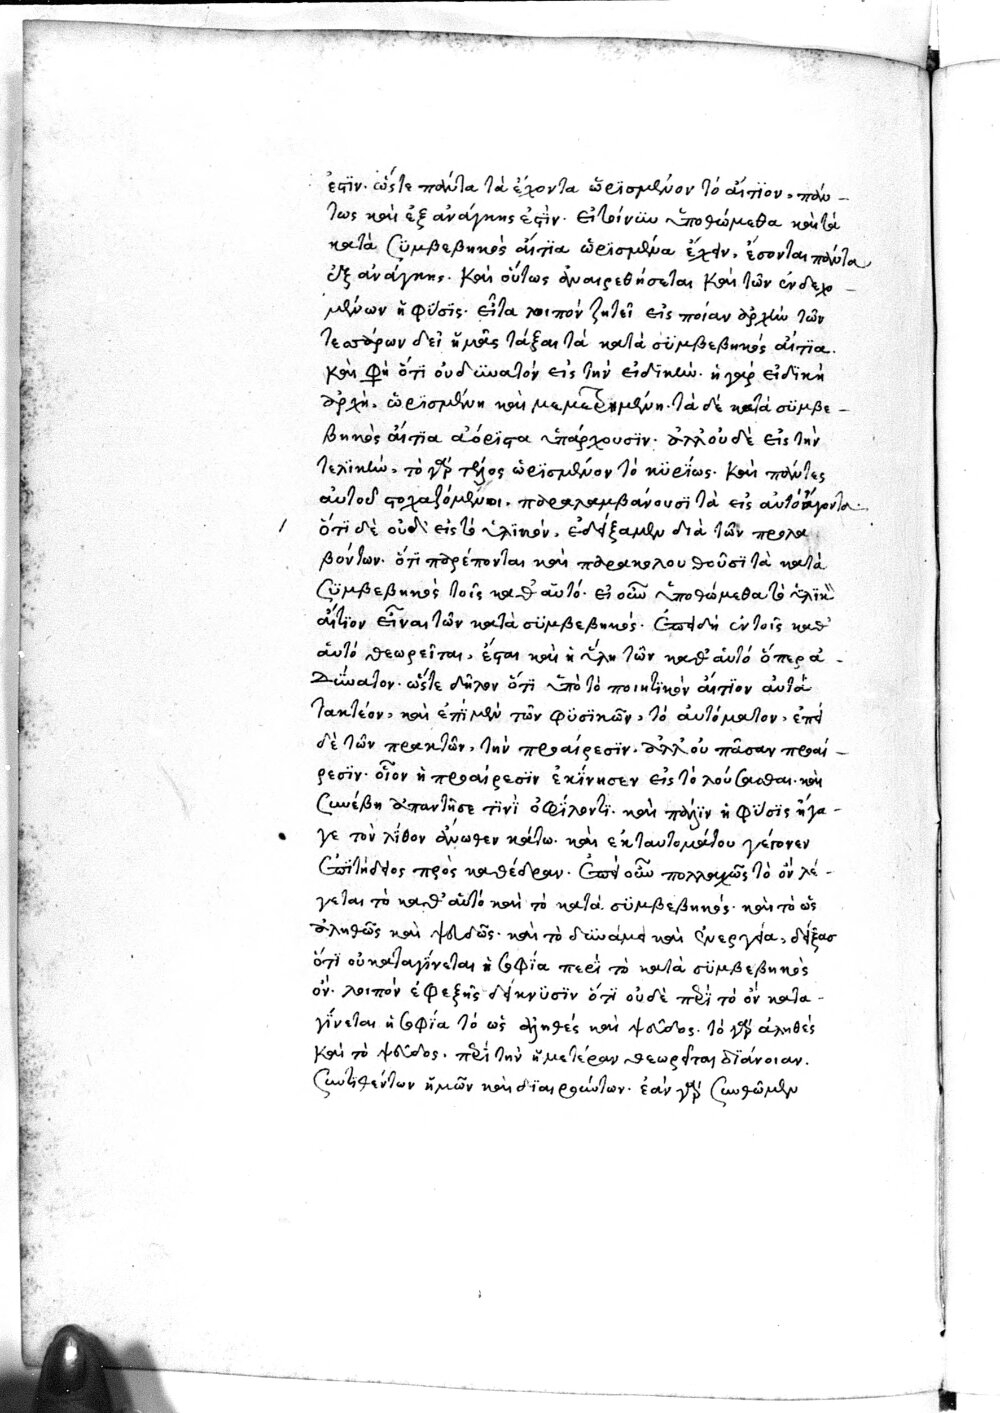 ἐστὶν. ὥστε πάντα τὰ ἔχοντα ὡρισμένον τὸ αἴτιον, πάν-
τως καὶ ἐξ ἀνάγκης ἐστὶν. εἰ τοίνυν ὑποθώμεθα καὶ τὰ
κατὰ συμβεβηκὸς αἴτια ὡρισμένα ἔχειν, ἔσονται πάντα
ἐξ ἀνάγκης. καὶ οὕτως ἀναιρεθήσεται καὶ τῶν ἐνδεχο-
μένων ἡ φύσις. εἶτα λοιπὸν ζητεῖ εἰς ποίαν ἀρχὴν τῶν
τεσσάρων δεῖ ἡμᾶς τάξαι τὰ κατὰ συμβεβηκὸς αἴτια.
καὶ φη ὅτι οὐ δυνατὸν εἰς τὴν εἰδικὴν. ἡ γὰρ εἰδικὴ
ἀρχὴ, ὡρισμένη καὶ μεμετρημένη. τὰ δὲ κατὰ συμβε-
βηκὸς αἴτια ἀόριστα ὑπάρχουσιν. ἀλλ' οὐδὲ εἰς τὴν
τελικὴν, τὸ γὰρ τέλος ὡρισμένον τὸ κυρίως. καὶ πάντες
αὐτοῦ στοχαζόμενοι, παραλαμβάνουσι τὰ εἰς αὐτὸ ἄγοντα.
ὅτι δὲ οὐδ' εἰς τὸ ὑλικὸν, ἐδείξαμεν διὰ τῶν προλα
βόντων. ὅτι παρέπονται καὶ παρακολουθοῦσι τὰ κατὰ
συμβεβηκὸς τοῖς καθ' αὑτό. εἰ οὖν ὑποθώμεθα τὸ ὑλικὸν
αἴτιον εἶναι τῶν κατὰ συμβεβηκὸς. ἐπειδὴ ἐν τοῖς καθ'
αὑτὸ θεωρεῖται, ἔσται καὶ ἡ ὕλη τῶν καθ' αὑτὸ ὅπερ ἀ-
δύνατον. ὥστε δῆλον ὅτι ὑπὸ τὸ ποιητικὸν αἴτιον αὐτὰ
τακτέον, καὶ ἐπὶ μὲν τῶν φυσικῶν, τὸ αὐτόματον, ἐπὶ
δὲ τῶν πρακτῶν, τὴν προαίρεσιν. ἀλλ' οὐ πᾶσαν προαί-
ρεσιν. οἷον ἡ προαίρεσιν ἐκίνησεν εἰς τὸ λούσασθαι. καὶ
συνέβη ἀπαντῆσε τινὶ ὀφίλοντι. καὶ πάλιν ἡ φύσις ἤγα-
γε τὸν λίθον ἄνωθεν κάτω. καὶ ἐκ ταυτομάτου γέγονεν
ἐπιτήδειος πρὸς καθέδραν. ἐπεὶ οὖν πολλαχῶς τὸ ὂν λέ-
γεται τὸ καθ' αὑτὸ καὶ τὸ κατὰ συμβεβηκὸς. καὶ τὸ ὡς
ἀληθῶς καὶ ψευδῶς. καὶ τὸ δυνάμει καὶ ἐνεργεία, δείξας
ὅτι οὐ καταγίνεται ἡ σοφία περὶ τὸ κατὰ συμβεβηκὸς
ὂν. λοιπὸν ἐφεξῆς δείκνυσιν ὅτι οὐδὲ περὶ τὸ ὂν κατα-
γίνεται ἡ σοφία τὸ ὡς ἀληθὲς καὶ ψεῦδος. τὸ γὰρ ἀληθὲς
καὶ τὸ ψεῦδος, περὶ τὴν ἡμετέραν θεωρεῖται διάνοιαν.
συντιθέντων ἡμῶν καὶ διαιρούντων. ἐὰν γὰρ συνθῶμεν